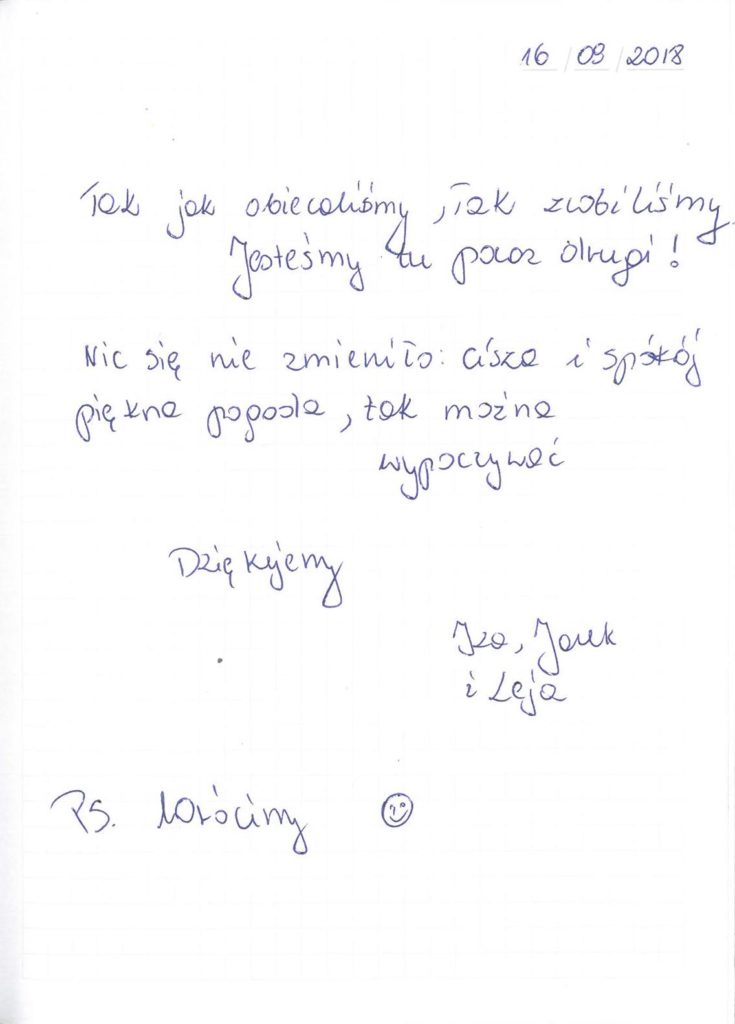 16/09/2018
Tak jak obiecaliśmy, tak zrobiliśmy
Jesteśmy tu poraz drugi!
Nic się nie zmieniło: cisza i spókój
piękna pogoda, tak można
wypoczywać
Dziękujemy
Iza, Jarek
i Leja
Ps. Wrócimy ☺